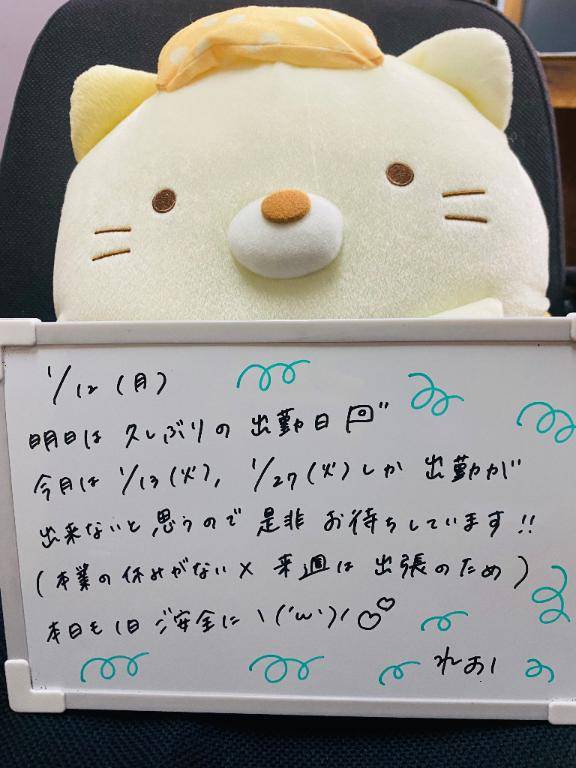 1/12(月)
明日は 久しぶりの 出勤日回"
今月は 1/13(火), 1/27(火)しか 出勤が
出来ないと思うので 是非 お待ちしています!!
(本業の休みがない × 来週は 出張のため)
本日も1日 ご安全に ヽ('ω')ノ♡♡
れおい